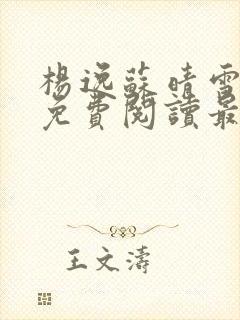 楊逸蘇晴雪
免費閱讀最
王文濤